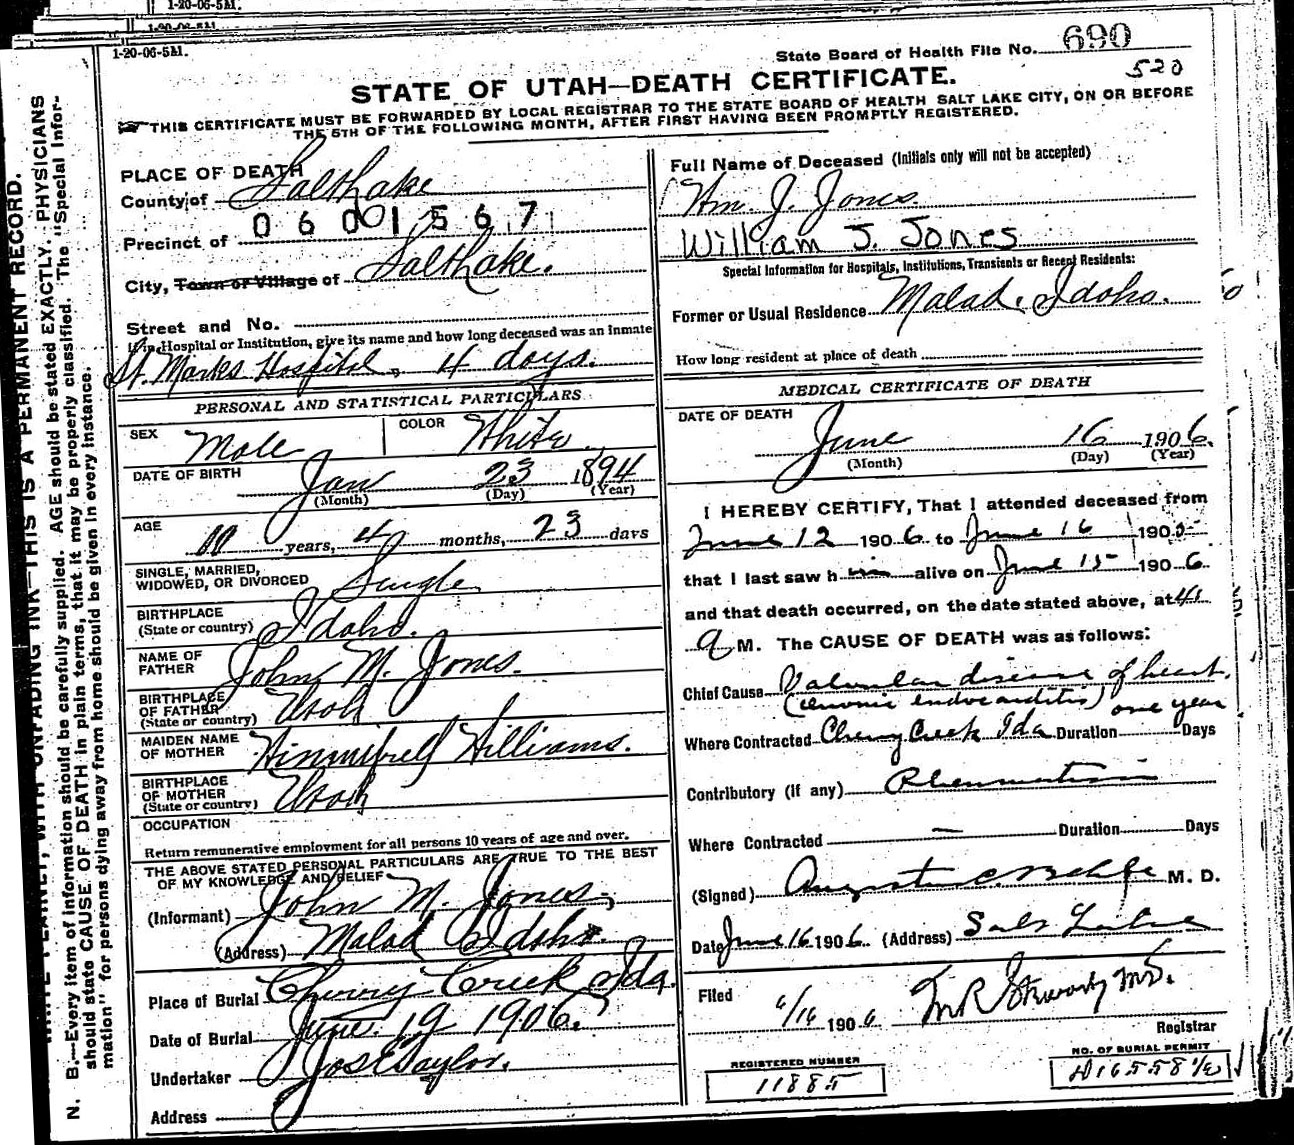 1-20-06-5M.
1-20-06-5M.
1-20-06-5M.
State Board of Health File No. 690
520
STATE OF UTAH—DEATH CERTIFICATE.
THIS CERTIFICATE MUST BE FORWARDED BY LOCAL REGISTRAR TO THE STATE BOARD OF HEALTH SALT LAKE CITY, ON OR BEFORE
THE 5TH OF THE FOLLOWING MONTH, AFTER FIRST HAVING BEEN PROMPTLY REGISTERED.
WRITE PLAINLY, WITH UNFADING INK—THIS IS A PERMANENT RECORD.
N. B.—Every item of information should be carefully supplied. AGE should be stated EXACTLY. PHYSICIANS
should state CAUSE OF DEATH in plain terms, that it may be properly classified. The "Special Infor-
mation" for persons dying away from home should be given in every instance.
PLACE OF DEATH
County of Salt Lake
0601567
Precinct of
City, Town or Village of Salt Lake.
Street and No.
If in Hospital or Institution, give its name and how long deceased was an inmate
St. Marks Hospital, 4 days.
PERSONAL AND STATISTICAL PARTICULARS
SEX Male COLOR White
DATE OF BIRTH Jan 23 1894
(Month) (Day) (Year)
AGE
11 years, 4 months, 23 days
SINGLE, MARRIED,
WIDOWED, OR DIVORCED Single
BIRTHPLACE
(State or country) Idaho.
NAME OF
FATHER John M. Jones.
BIRTHPLACE
OF FATHER
(State or country) Utah
MAIDEN NAME
OF MOTHER Winnifred Williams.
BIRTHPLACE
OF MOTHER
(State or country) Utah
OCCUPATION
Return remunerative employment for all persons 10 years of age and over.
THE ABOVE STATED PERSONAL PARTICULARS ARE TRUE TO THE BEST
OF MY KNOWLEDGE AND BELIEF
(Informant) John M. Jones,
(Address) Malad Idaho.
Place of Burial Cherry Creek Ida.
Date of Burial June. 19 1906.
Undertaker Jos E Taylor.
Address
Full Name of Deceased (Initials only will not be accepted)
Wm. J. Jones.
William J. Jones
Special Information for Hospitals, Institutions, Transients or Recent Residents:
Former or Usual Residence Malad. Idaho.
How long resident at place of death
MEDICAL CERTIFICATE OF DEATH
DATE OF DEATH
June 16 1906.
(Month) (Day) (Year)
I HEREBY CERTIFY, That I attended deceased from
June 12 1906 to June 16 1905
that I last saw him alive on June 15 1906
and that death occurred, on the date stated above, at 4
a M. The CAUSE OF DEATH was as follows:
Chief Cause Valvular disease of heart.
(chronic endocarditis) one year
Where Contracted Cherry Creek Ida Duration Days
Contributory (if any) Rheumatism
Where Contracted — Duration Days
(Signed) M. D.
Date June 16 1906 (Address) Salt Lake
Filed 6/16 1906
Registrar
REGISTERED NUMBER
11885
NO. OF BURIAL PERMIT
D16558½